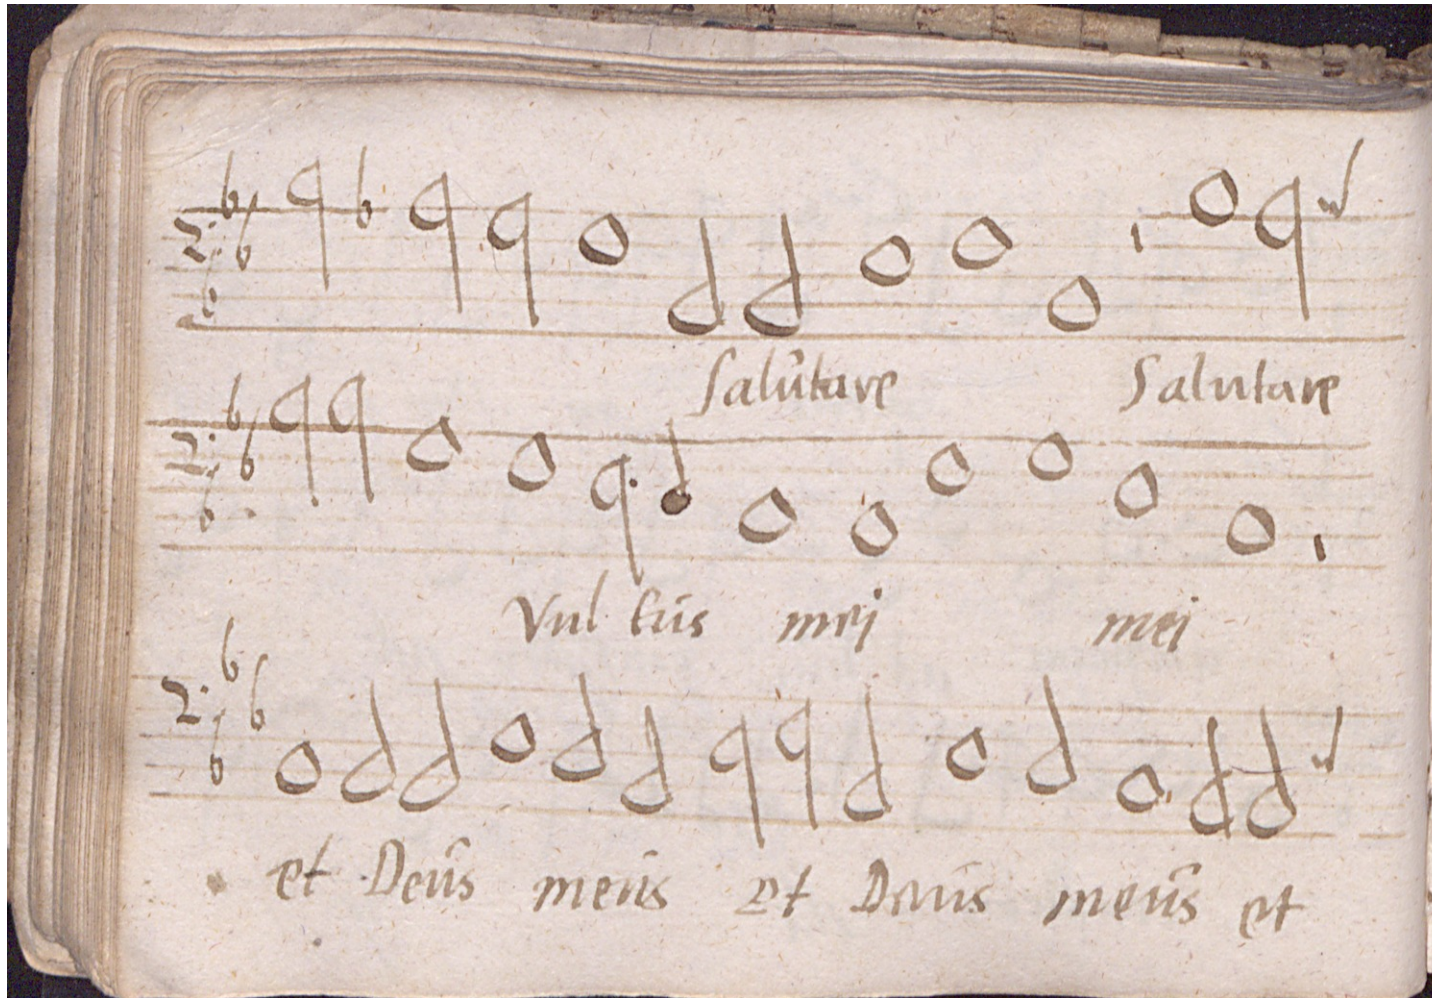 Salutare Salutare
Vul tus mei mei
et Deus meus et Deus meus et